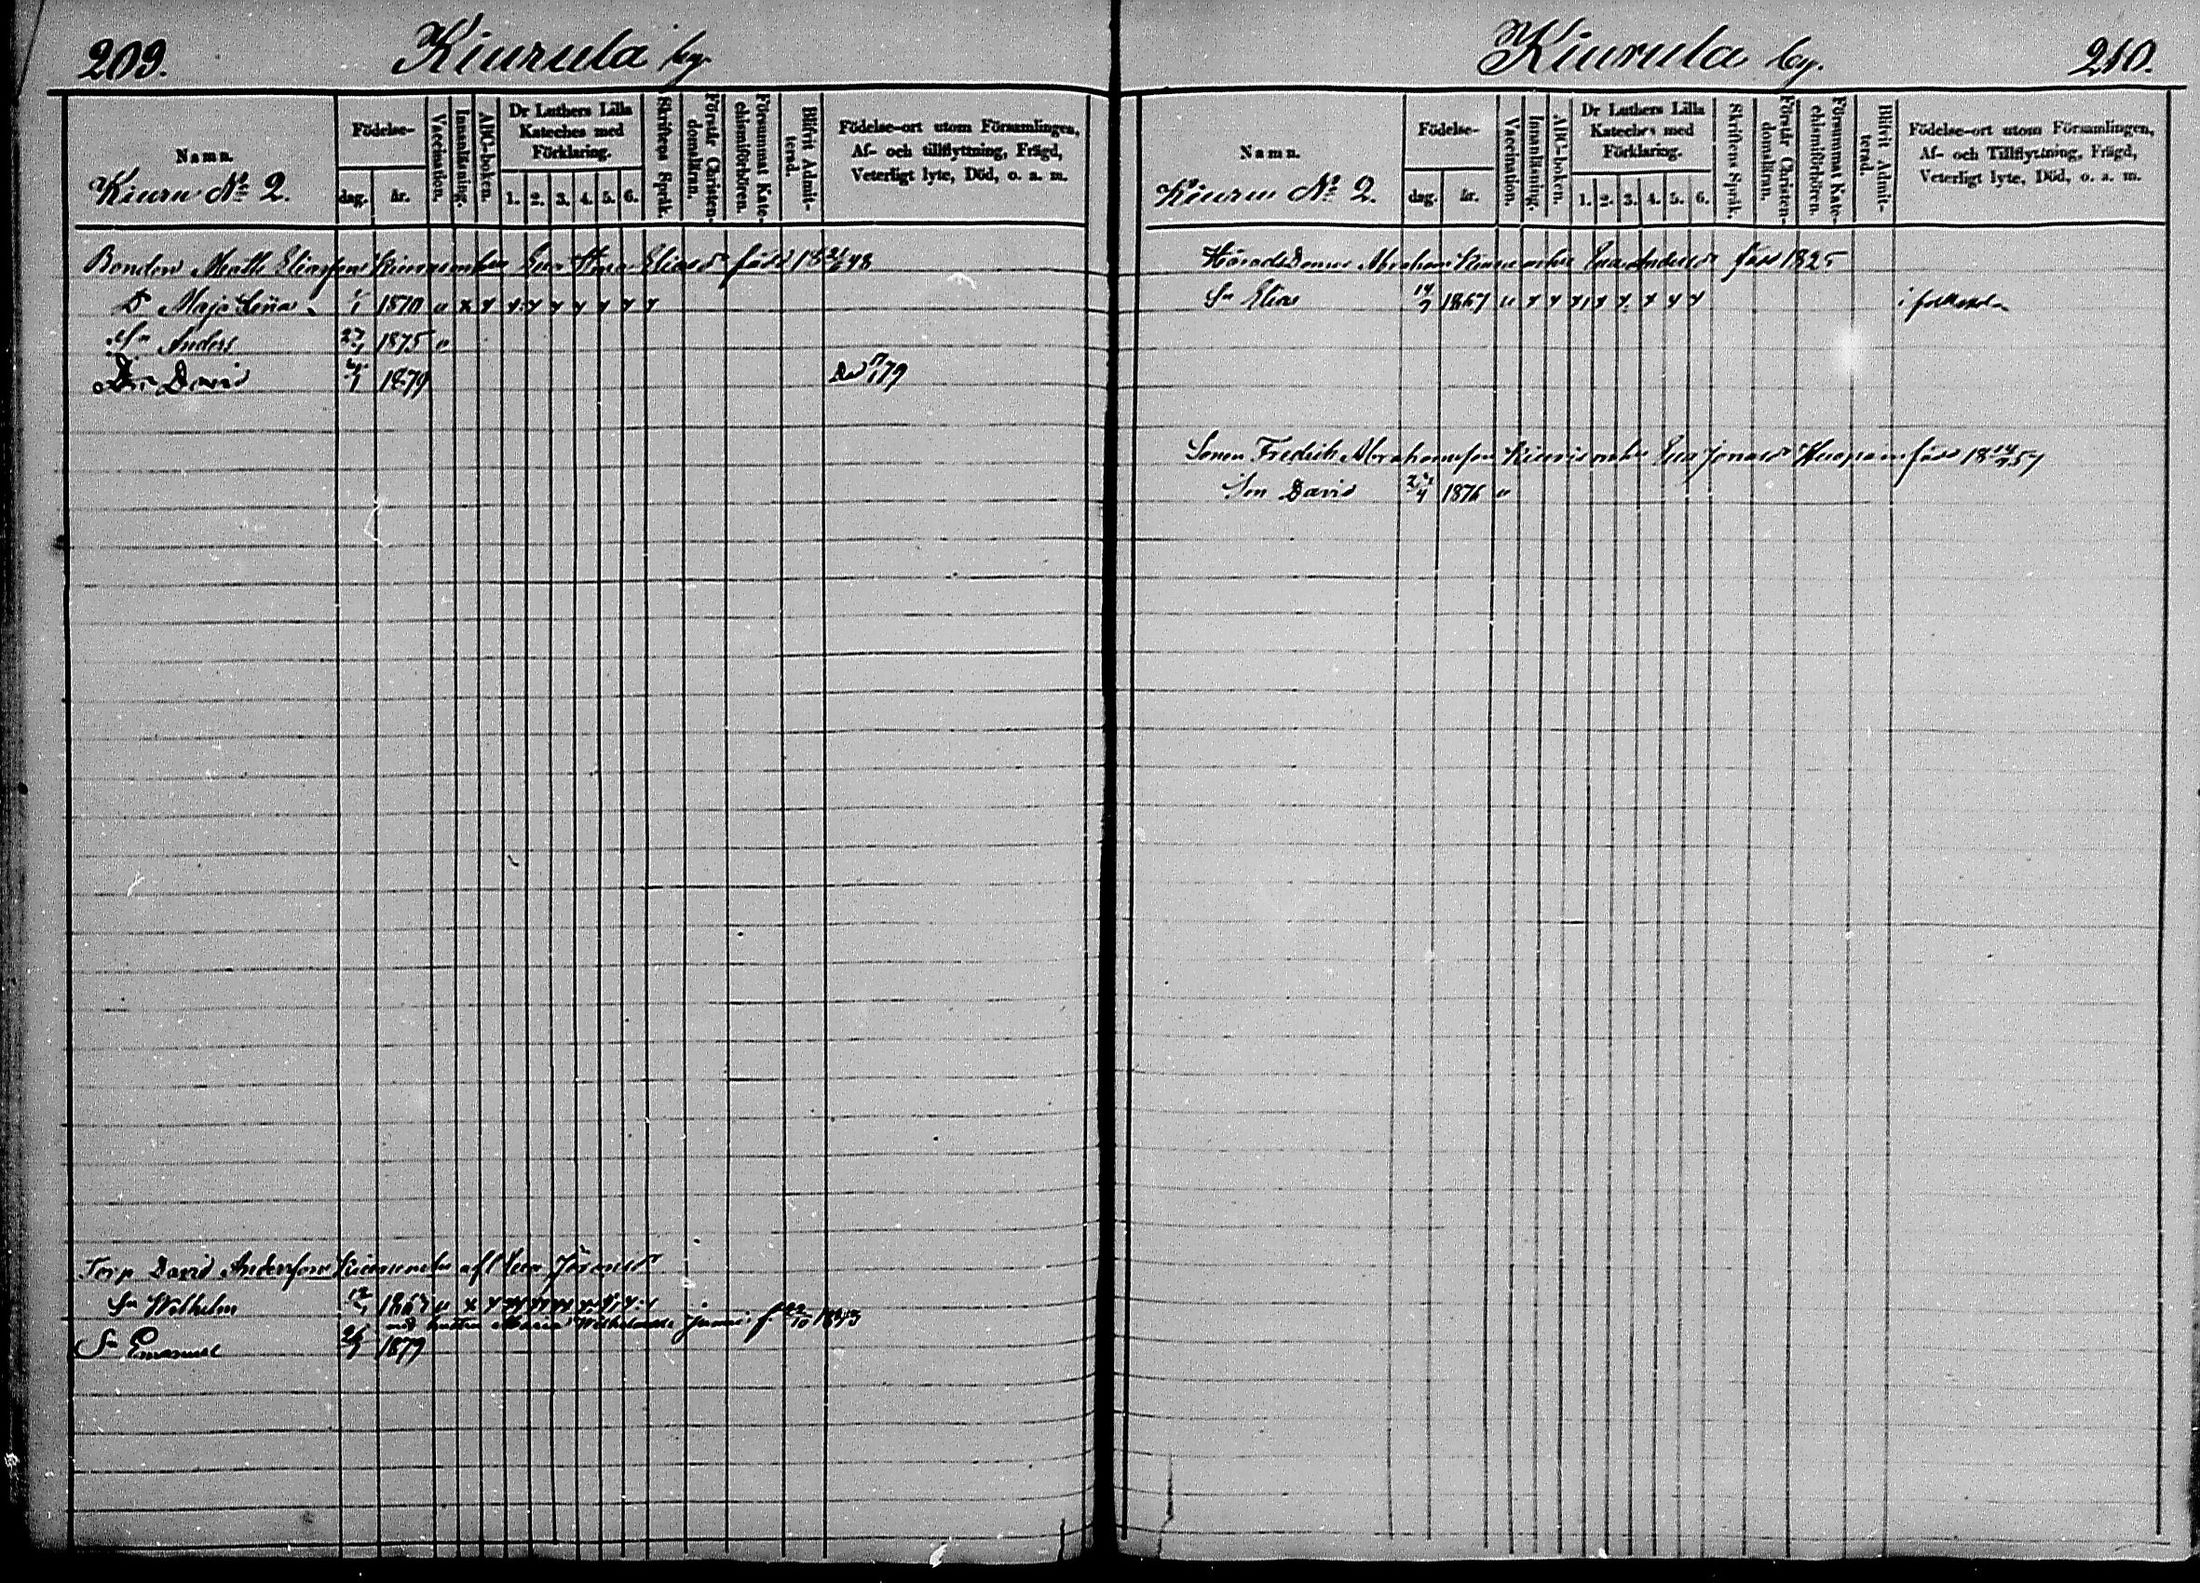 209.
Kiurula by.
Namn.
Kiuru No 2.
Födelse-
dag.
år.
Vaccination.
Innanläsning.
ABC-boken.
Dr Luthers Lilla Kateches med Förklaring.
1. 2. 3. 4. 5. 6.
Skriftens Språk.
Förstår Christendomsläran.
Försummat Katechismiförhören.
Blifvit Admitterad.
Födelse-ort utom Församlingen,
Af- och tillflyttning, Frägd,
Veterligt lyte, Död, o. a. m.
Bonden Matts Eliasson Kiuru enka Eva Stina Eliasd. född 18 48
Dr Maja Lena 1870
Sn Anders 27 1875
Sn David 1879 Död 79
Torp David Andersson Eva
Sn Wilhelm 1867
med hustru Maria Wilhelmsd. f. 22/10 1843
Sn Emanuel 1879
Kiurula by.
210.
Namn.
Kiuru No 2.
Födelse-
dag.
år.
Vaccination.
Innanläsning.
ABC-boken.
Dr Luthers Lilla Kateches med Förklaring.
1. 2. 3. 4. 5. 6.
Skriftens Språk.
Förstår Christendomsläran.
Försummat Katechismiförhören.
Blifvit Admitterad.
Födelse-ort utom Församlingen,
Af- och Tillflyttning, Frägd,
Veterligt lyte, Död, o. a. m.
Härads Domar Abraham Kiuru Eva Andersd. född 1825
Sn Elias 14/7 1867 i folkskola
Sonen Fredrik Abrahamsson Eva Jonasd. född 18 14 57
Son David 1876